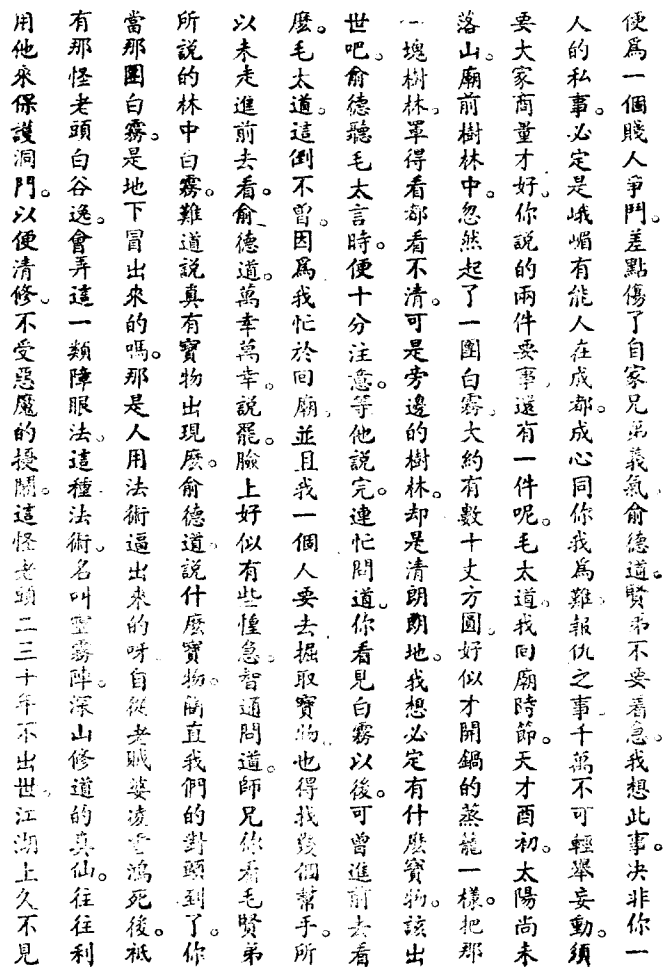 便爲一個賤人爭鬥。差點傷了自家兄弟義氣。俞德道。賢弟不要着急。我想此事。决非你一
人的私事。必定是峨嵋有能人在成都。成心同你我爲難。報仇之事。千萬不可輕舉妄動。須
要大家商量才好。你說的兩件要事。還有一件呢。毛太道。我回廟時節。天才酉初。太陽尚未
落山。廟前樹林中。忽然起了一團白霧。大約有數十丈方圓。好似才開鍋的蒸籠一樣。把那
一塊樹林。罩得看都看不清。可是旁邊的樹林。却是清朗朗地。我想必定有什麽寶物。該出
世吧。俞德聽毛太言時。便十分注意。等他說完。連忙問道。你看見白霧以後。可曾進前去看
麽。毛太道。這倒不曾。因爲我忙於回廟。並且我一個人要去掘取寶物。也得找幾個幫手。所
以未走進前去看。俞德道。萬幸萬幸。說罷。臉上好似有些惶急。智通問道。師兄你看毛賢弟
所說的林中白霧。難道說真有寶物出現麽。俞德道。說什麽寶物。簡直我們的對頭到了。你
當那團白霧。是地下冒出來的嗎。那是人用法術逼出來的呀。自從老賊婆凌雪鴻死後。祗
有那怪老頭白谷逸。會弄這一類障眼法。這種法術。名叫靈霧陣。深山修道的真仙。往往利
用他來保護洞門。以便清修。不受惡魔的擾鬧。這怪老頭二三十年不出世。江湖上久不見